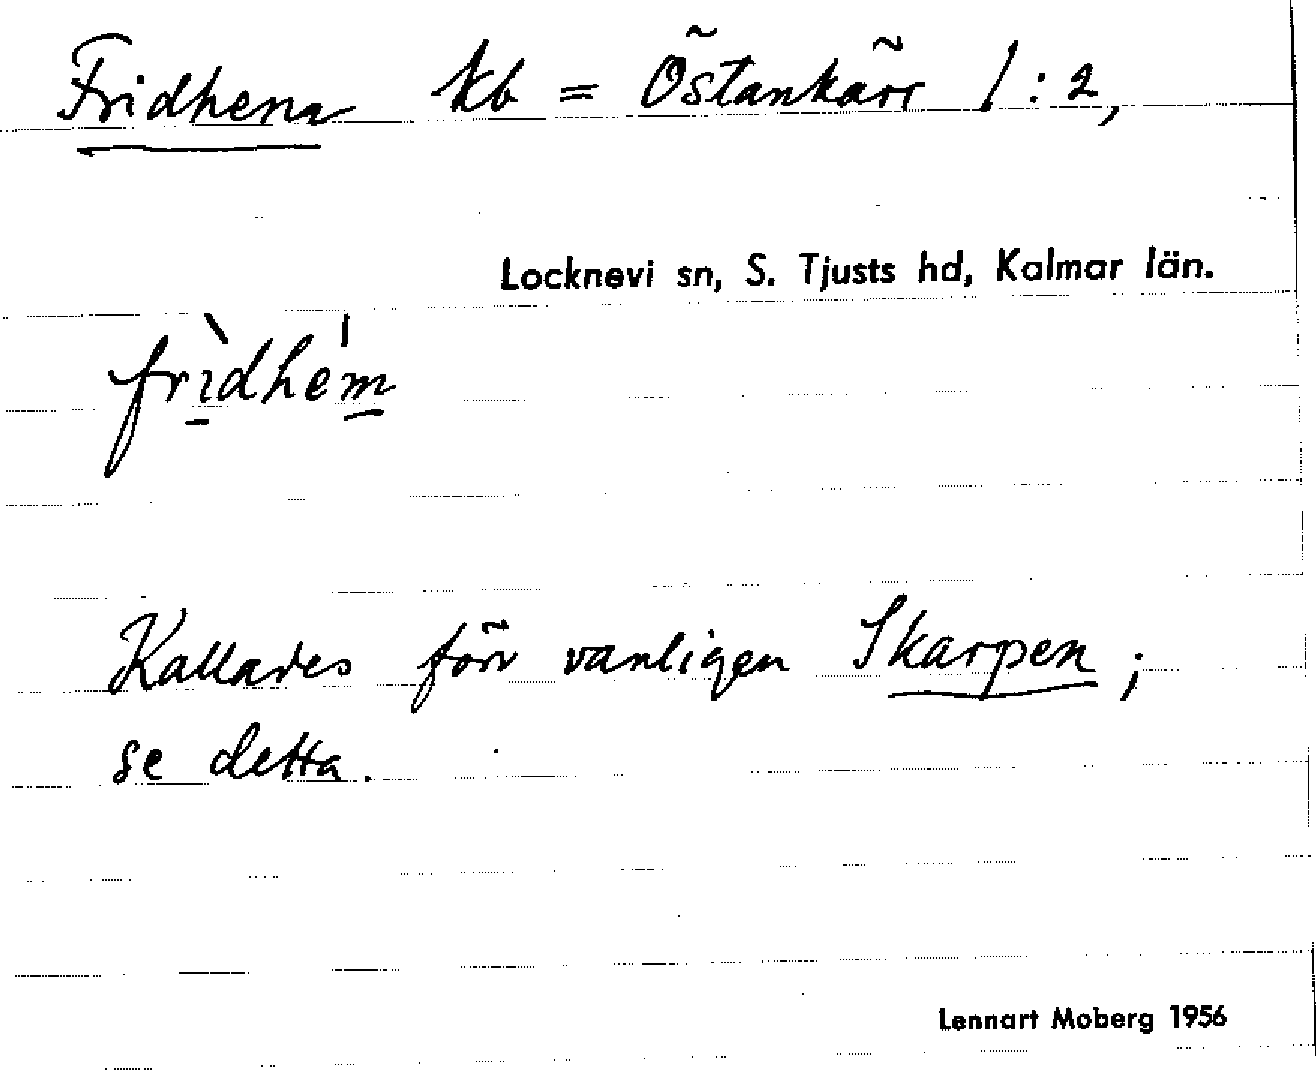 Fridhem kb = Östankärr 1:2,
Locknevi sn, S. Tjusts hd, Kalmar län.
frìdhém
Kallades förr vanligen Skarpen;
se detta.
Lennart Moberg 1956